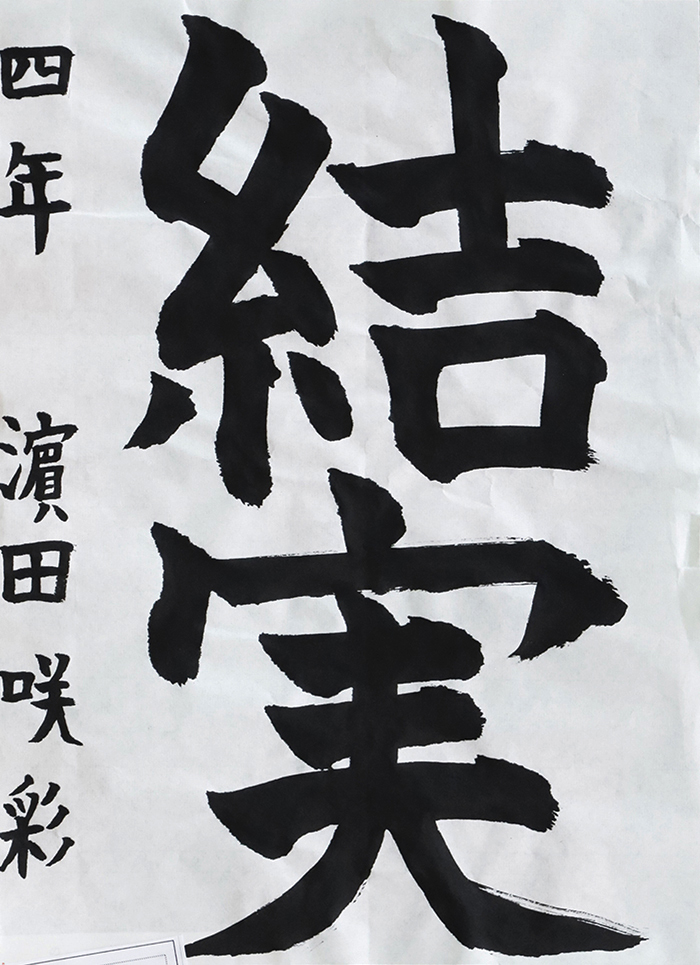 結実
四年 濵田咲彩